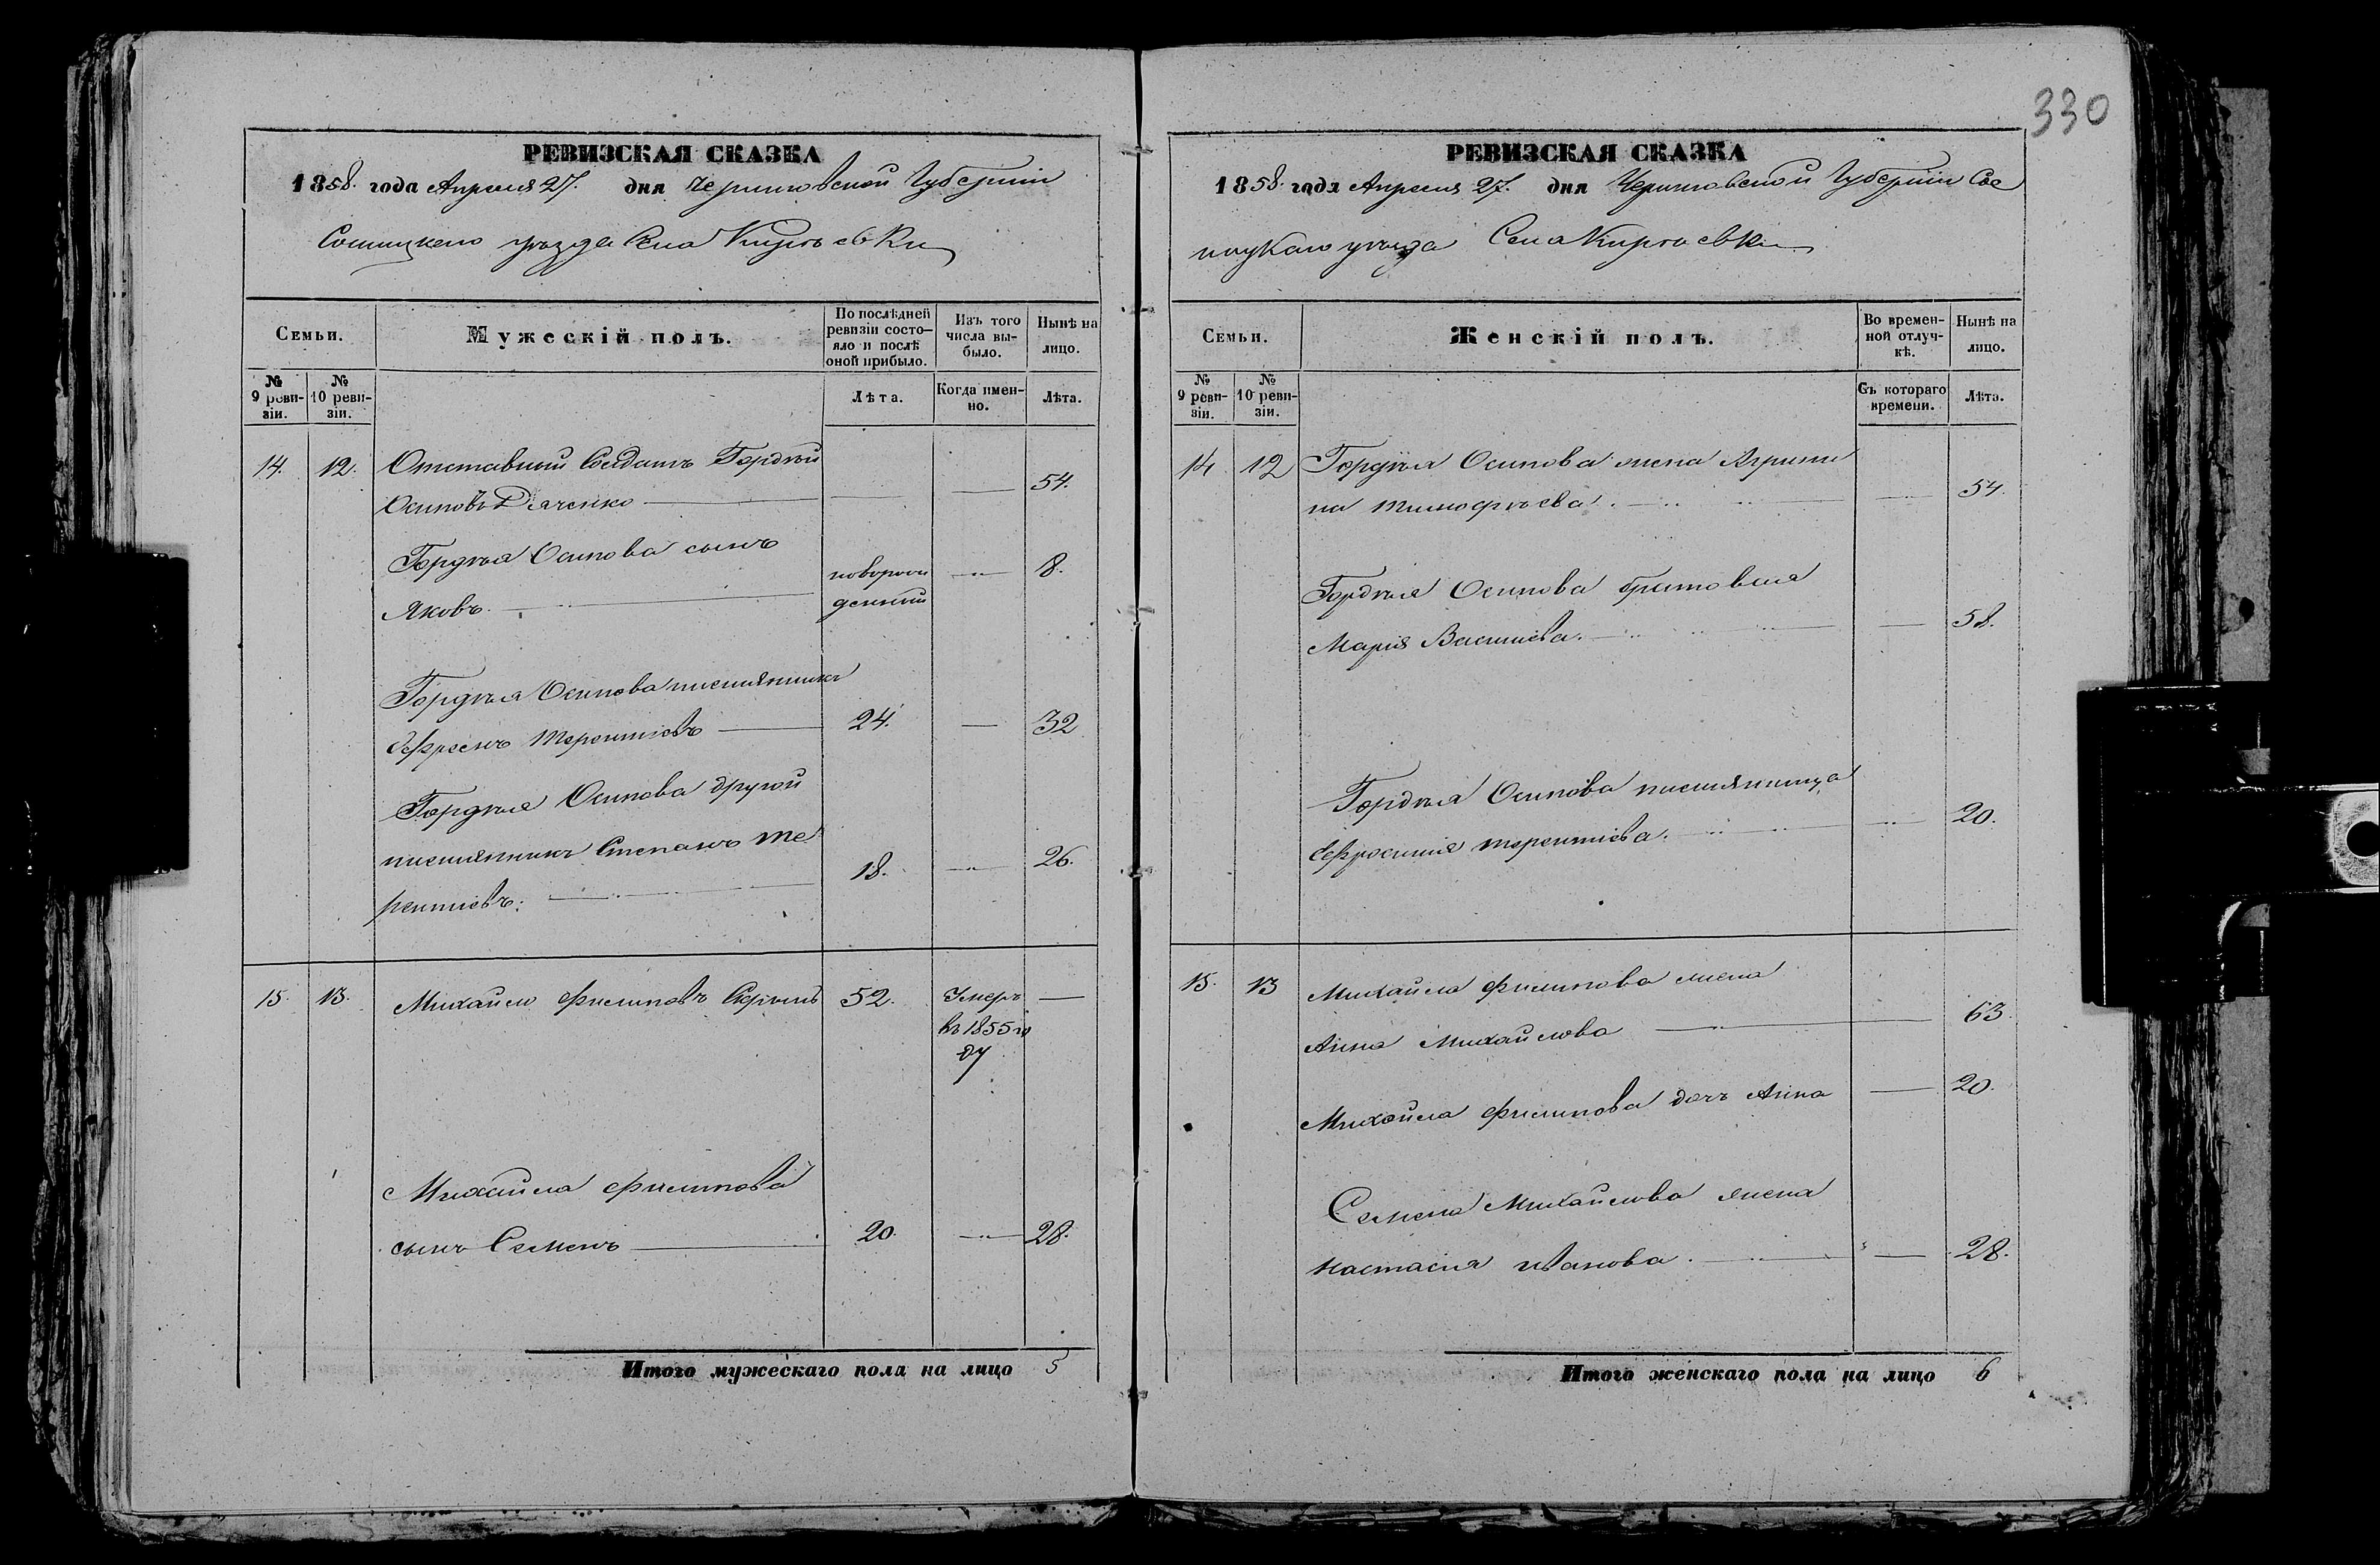 330
РЕВИЗСКАЯ СКАЗКА
1858. года Апреля 27. дня Черниговской Губернiи
Сосницкаго уѣзда Села Киріевки
Семьи.
Мужескій полъ.
По послѣдней ревизіи состо-
яло и послѣ
оной прибыло.
Изъ того
числа вы-
было.
Нынѣ на
лицо.
№
9 реви-
зіи.
№
10 реви-
зіи.
Лѣта.
Когда имен-
но.
Лѣта.
14. 12. Отставный Солдатъ Гордѣй
Осиповъ Дяченко 54.
Гордѣя Осипова сынъ
Яковъ. новорож
денный 8.
Гордѣя Осипова племянникъ
Ефремъ Терентіевъ 24. 32
Гордѣя Осипова другой
племянникъ Степанъ Те
рентіевъ. 18. 26.
15. 13. Михайло Филиповъ 52. Умеръ
въ 1855 го
ду
Михайла Филипова
сынъ Семенъ 20. 28.
Итого мужескаго пола на лицо 5
РЕВИЗСКАЯ СКАЗКА
1858. года Апреля 27. дня Черниговской Губерніи Сос
ницкаго уѣзда Села Киріевки
Семьи.
Женскій полъ.
Во времен-
ной отлуч-
кѣ.
Нынѣ на
лицо.
№
9 реви-
зіи.
№
10 реви-
зіи.
Съ котораго
времени.
Лѣта.
14 12 Гордѣя Осипова жена Агрипи
на Тимофѣева. 54.
Гордѣя Осипова
Марія Василіева. 58.
Гордѣя Осипова племянница
Ефросинія Терентіева. 20.
15. 13 Михайла Филипова жена
Анна Михайлова 63.
Михайла Филипова дочь Анна 20.
Семена Михайлова жена
Настасія Иванова. 28.
Итого женскаго пола на лицо 6